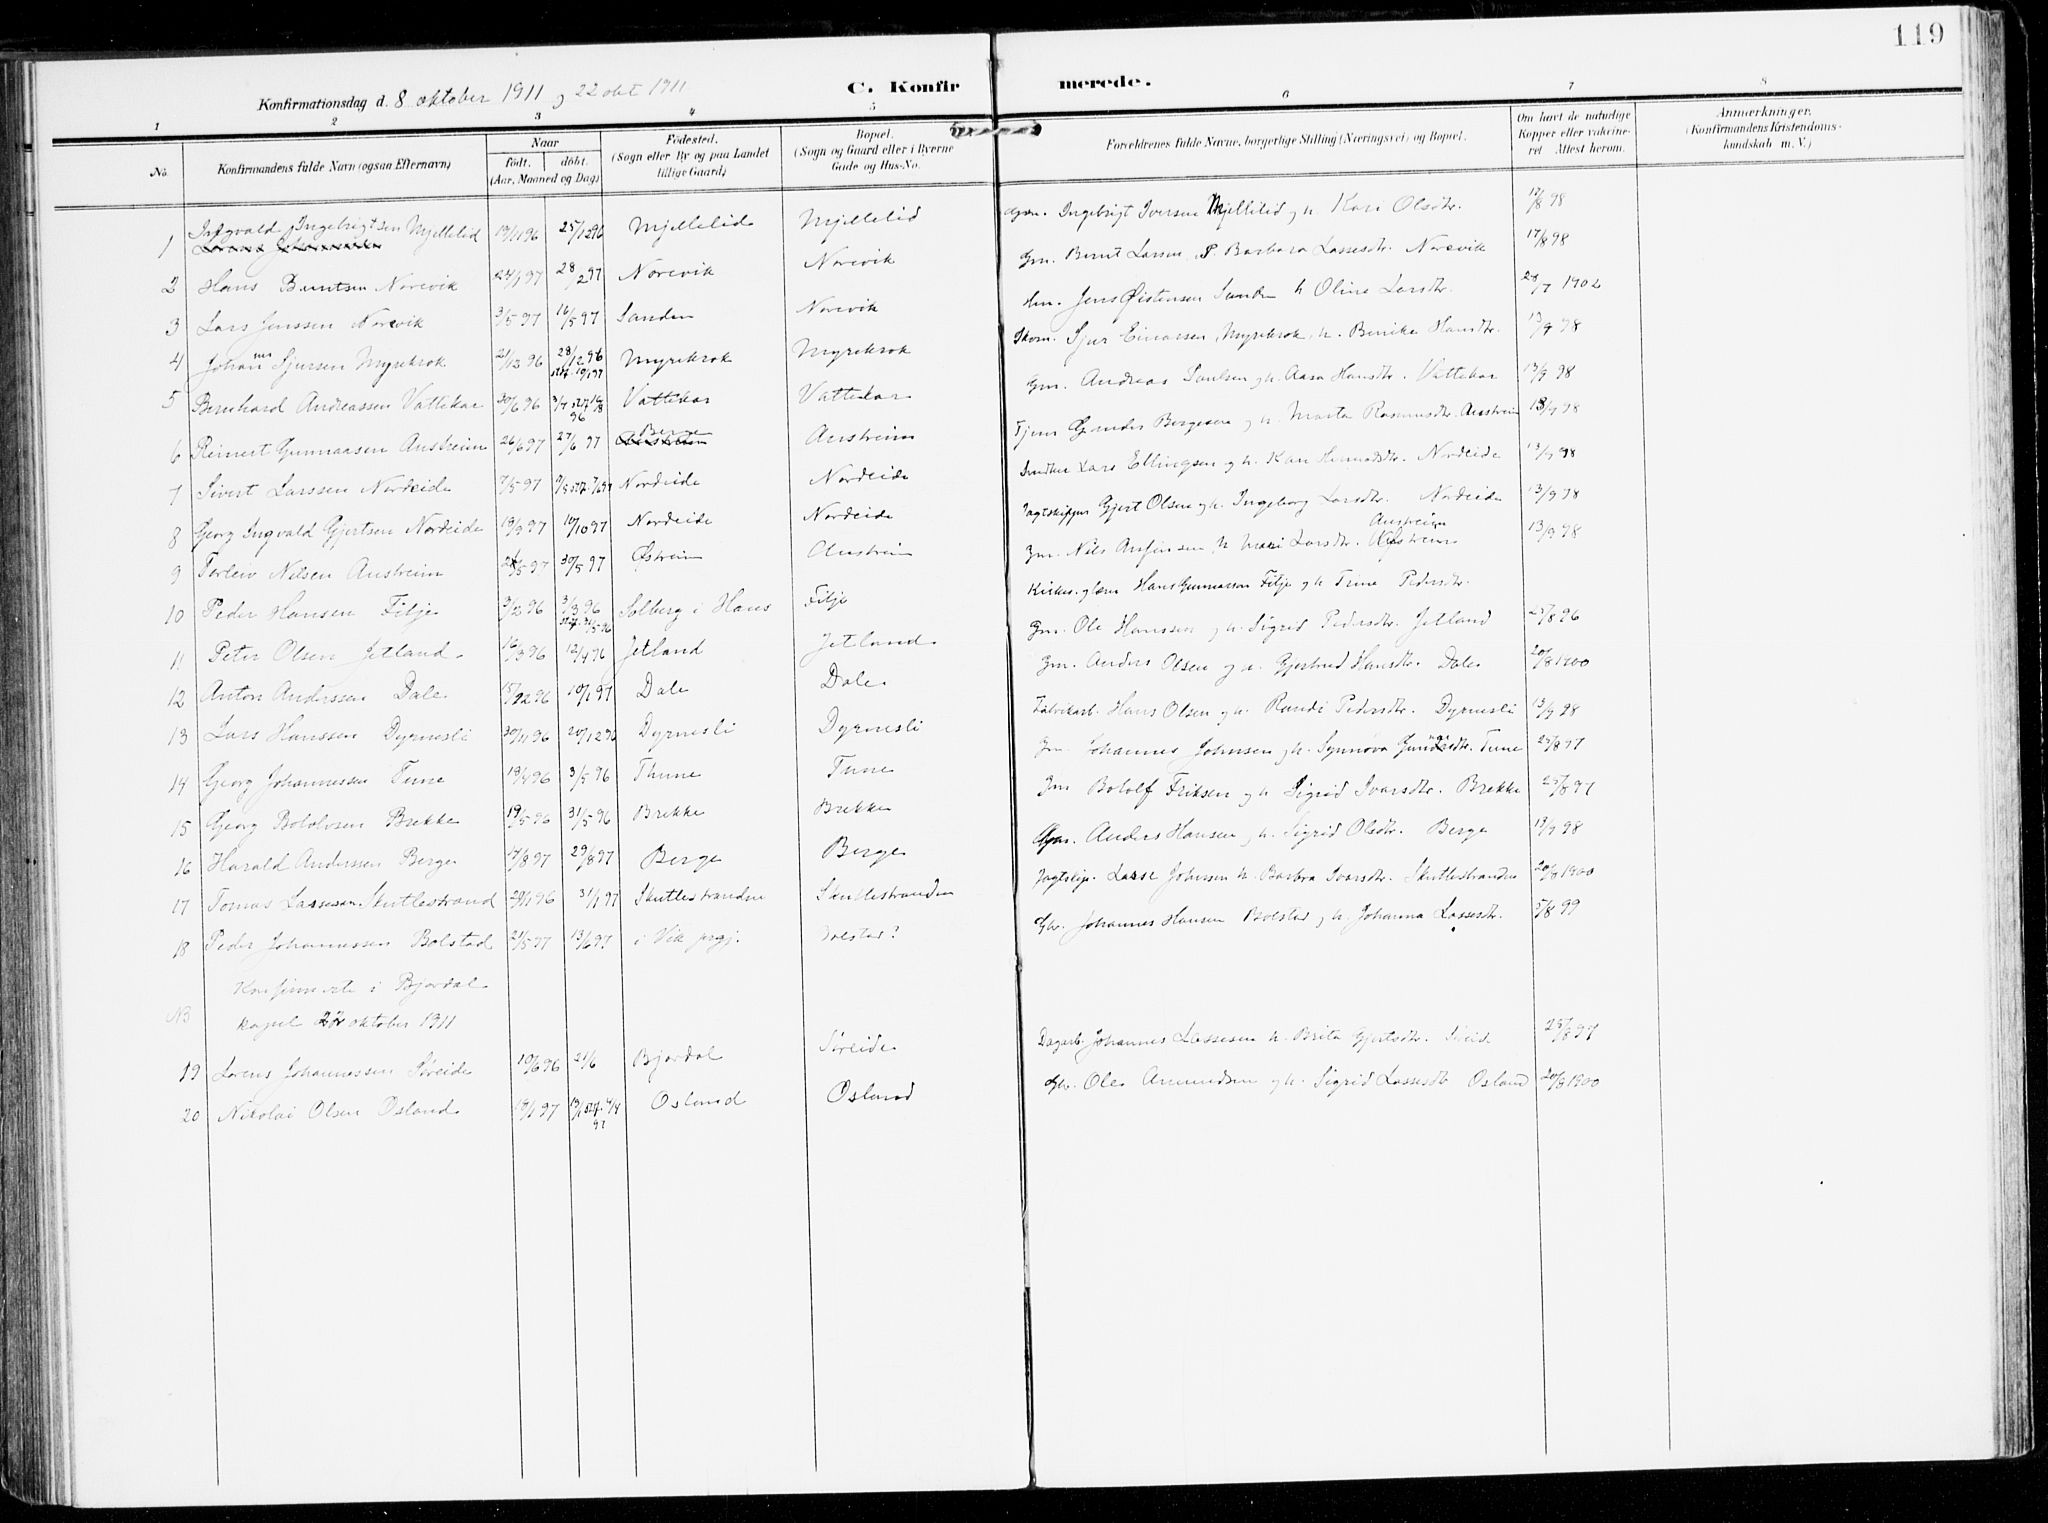 119
Konfirmationsdag d. 8 oktober 1911 og 22 okt 1911 C. Konfirmerede.
1 2 3 4 5 6 7 8
No. Konfirmandens fulde Navn (ogsaa Efternavn) Naar født. døbt. (Aar, Maaned og Dag) Fødested. (Sogn eller By og paa Landet tillige Gaard) Bopæl. (Sogn og Gaard eller i Byerne Gade og Hus-No. Forældrenes fulde Navne, borgerlige Stilling (Næringsvei) og Bopæl. Om havt de naturlige Kopper eller vaccineret. Attest herom. Anmærkninger. (Konfirmandens Kristendomskundskab m. V.)
1 Ingvald Ingebrigtsen Mjellelid 13/11 96 25/12 96 Mjellelid Mjellelid Ingebrigt Iversen Mjellelid og h. Kari Olsdtr. 17/8 98
2 Hans Berntsen Norevik 24/1 97 28/2 97 Norevik Norevik Gm. Bernt Larsen Barbara Lassesdtr. Norevik 17/8 98
3 Lars Jenssen Norevik 3/5 97 16/5 97 Sanden Norevik Hm. Jens Øistensen Sanden h Oline Larsdtr. 28/7 1902
4 Johannes Sjursen Myrekrok 21/12 96 28/12 96 stf. 10/1 97 Myrekrok Myrekrok Skom. Sjur Einarsen Myrekrok h. Berike Hansdtr. 13/9 98
5 Bernhard Andreassen Vattekar 20/6 96 3/7 stf 16/8 96 Vattekar Vattekar Gm. Andreas Paulsen og h. Aasa Hansdtr. Vattekar 13/9 98
6 Reinert Gunnarsen Austreim 26/6 97 27/6 97 Berge Austreim Tjener Gunder Bergesen og h. Marta Rasmusdtr. Austreim 13/9 98
7 Sivert Larssen Nordeide 7/5 97 9/5 stf. 7/6 97 Nordeide Nordeide Lars Ellingsen og h. Kari Nordeide 13/9 98
8 Georg Ingvald Gjertsen Nordeide 13/9 97 10/10 97 Nordeide Nordeide Jagtskipper Gjert Olsen og h. Ingeborg Larsdtr. Nordeide 13/9 98
9 Torleiv Nilsen Austreim 24/5 97 30/5 97 Østreim Austreim Gm. Nils Anfinsen h Mari Larsdtr. Austreim 13/9 98
10 Peder Hansen Filje 3/2 96 3/3 96 stf. 31/5 96 Solberg i Haus Filje Kirkes. og lærer Hans Gunnarson Filje og h. Trine Pedersdtr.
11 Peter Olsen Jetland 16/3 96 12/4 96 Jetland Jetland Gm. Ole Hanssen og h. Sigrid Pedersdtr. Jetland 25/8 96
12 Anton Anderssen Dale 15/12 96 10/1 97 Dale Dale Gm. Anders Olsen og h. Gjertrud Hansdtr. Dale 20/8 1900
13 Lars Hanssen Dyrnesli 30/11 96 20/12 96 Dyrnesli Dyrnesli Fabrikarb. Hans Olsen og h. Randi Pedersdtr. Dyrnesli 13/9 98
14 Georg Johannessen Tune 19/4 96 3/5 96 Thune Tune Gm. Johannes Johnsen og h. Synnøva Tune 25/8 97
15 Georg Bololvsen Brekke 19/5 96 31/5 96 Brekke Brekke Gm Bololf Eriksen og h. Sigrid Ivarsdtr. Brekke 25/8 97
16 Harald Anderssen Berge 17/8 97 29/8 97 Berge Berge Gm. Anders Hansen og h. Sigrid Olsdtr. Berge 13/9 98
17 Tomas Lassesen Skuttlestrand 29/11 96 31/1 97 Skutlestranden Skutlestranden Lasse Johnsen h. Barbra Ivarsdtr. Skutlestranden 20/8 1900
18 Peder Johannessen Bolstad 21/5 97 13/6 97 i Vik prgj. Bolstad? Gbr. Johannes Hansen Bolstad og h. Johanna Lassesdtr. 5/8 99
Konfirmerte i Bjordal
NB kapel 22 oktober 1911
19 Lorens Johannessen Søreide 10/6 96 21/6 Bjordal Søreide Dagarb. Johannes Lassesen h. Brita Gjertsdtr. 25/8 97
20 Nikolai Olsen Osland 18/1 97 19/1 stf. 4/4 97 Osland Osland Gbr. Ole Amundsen og h. Sigrid Lassesdtr Osland 20/8 1900